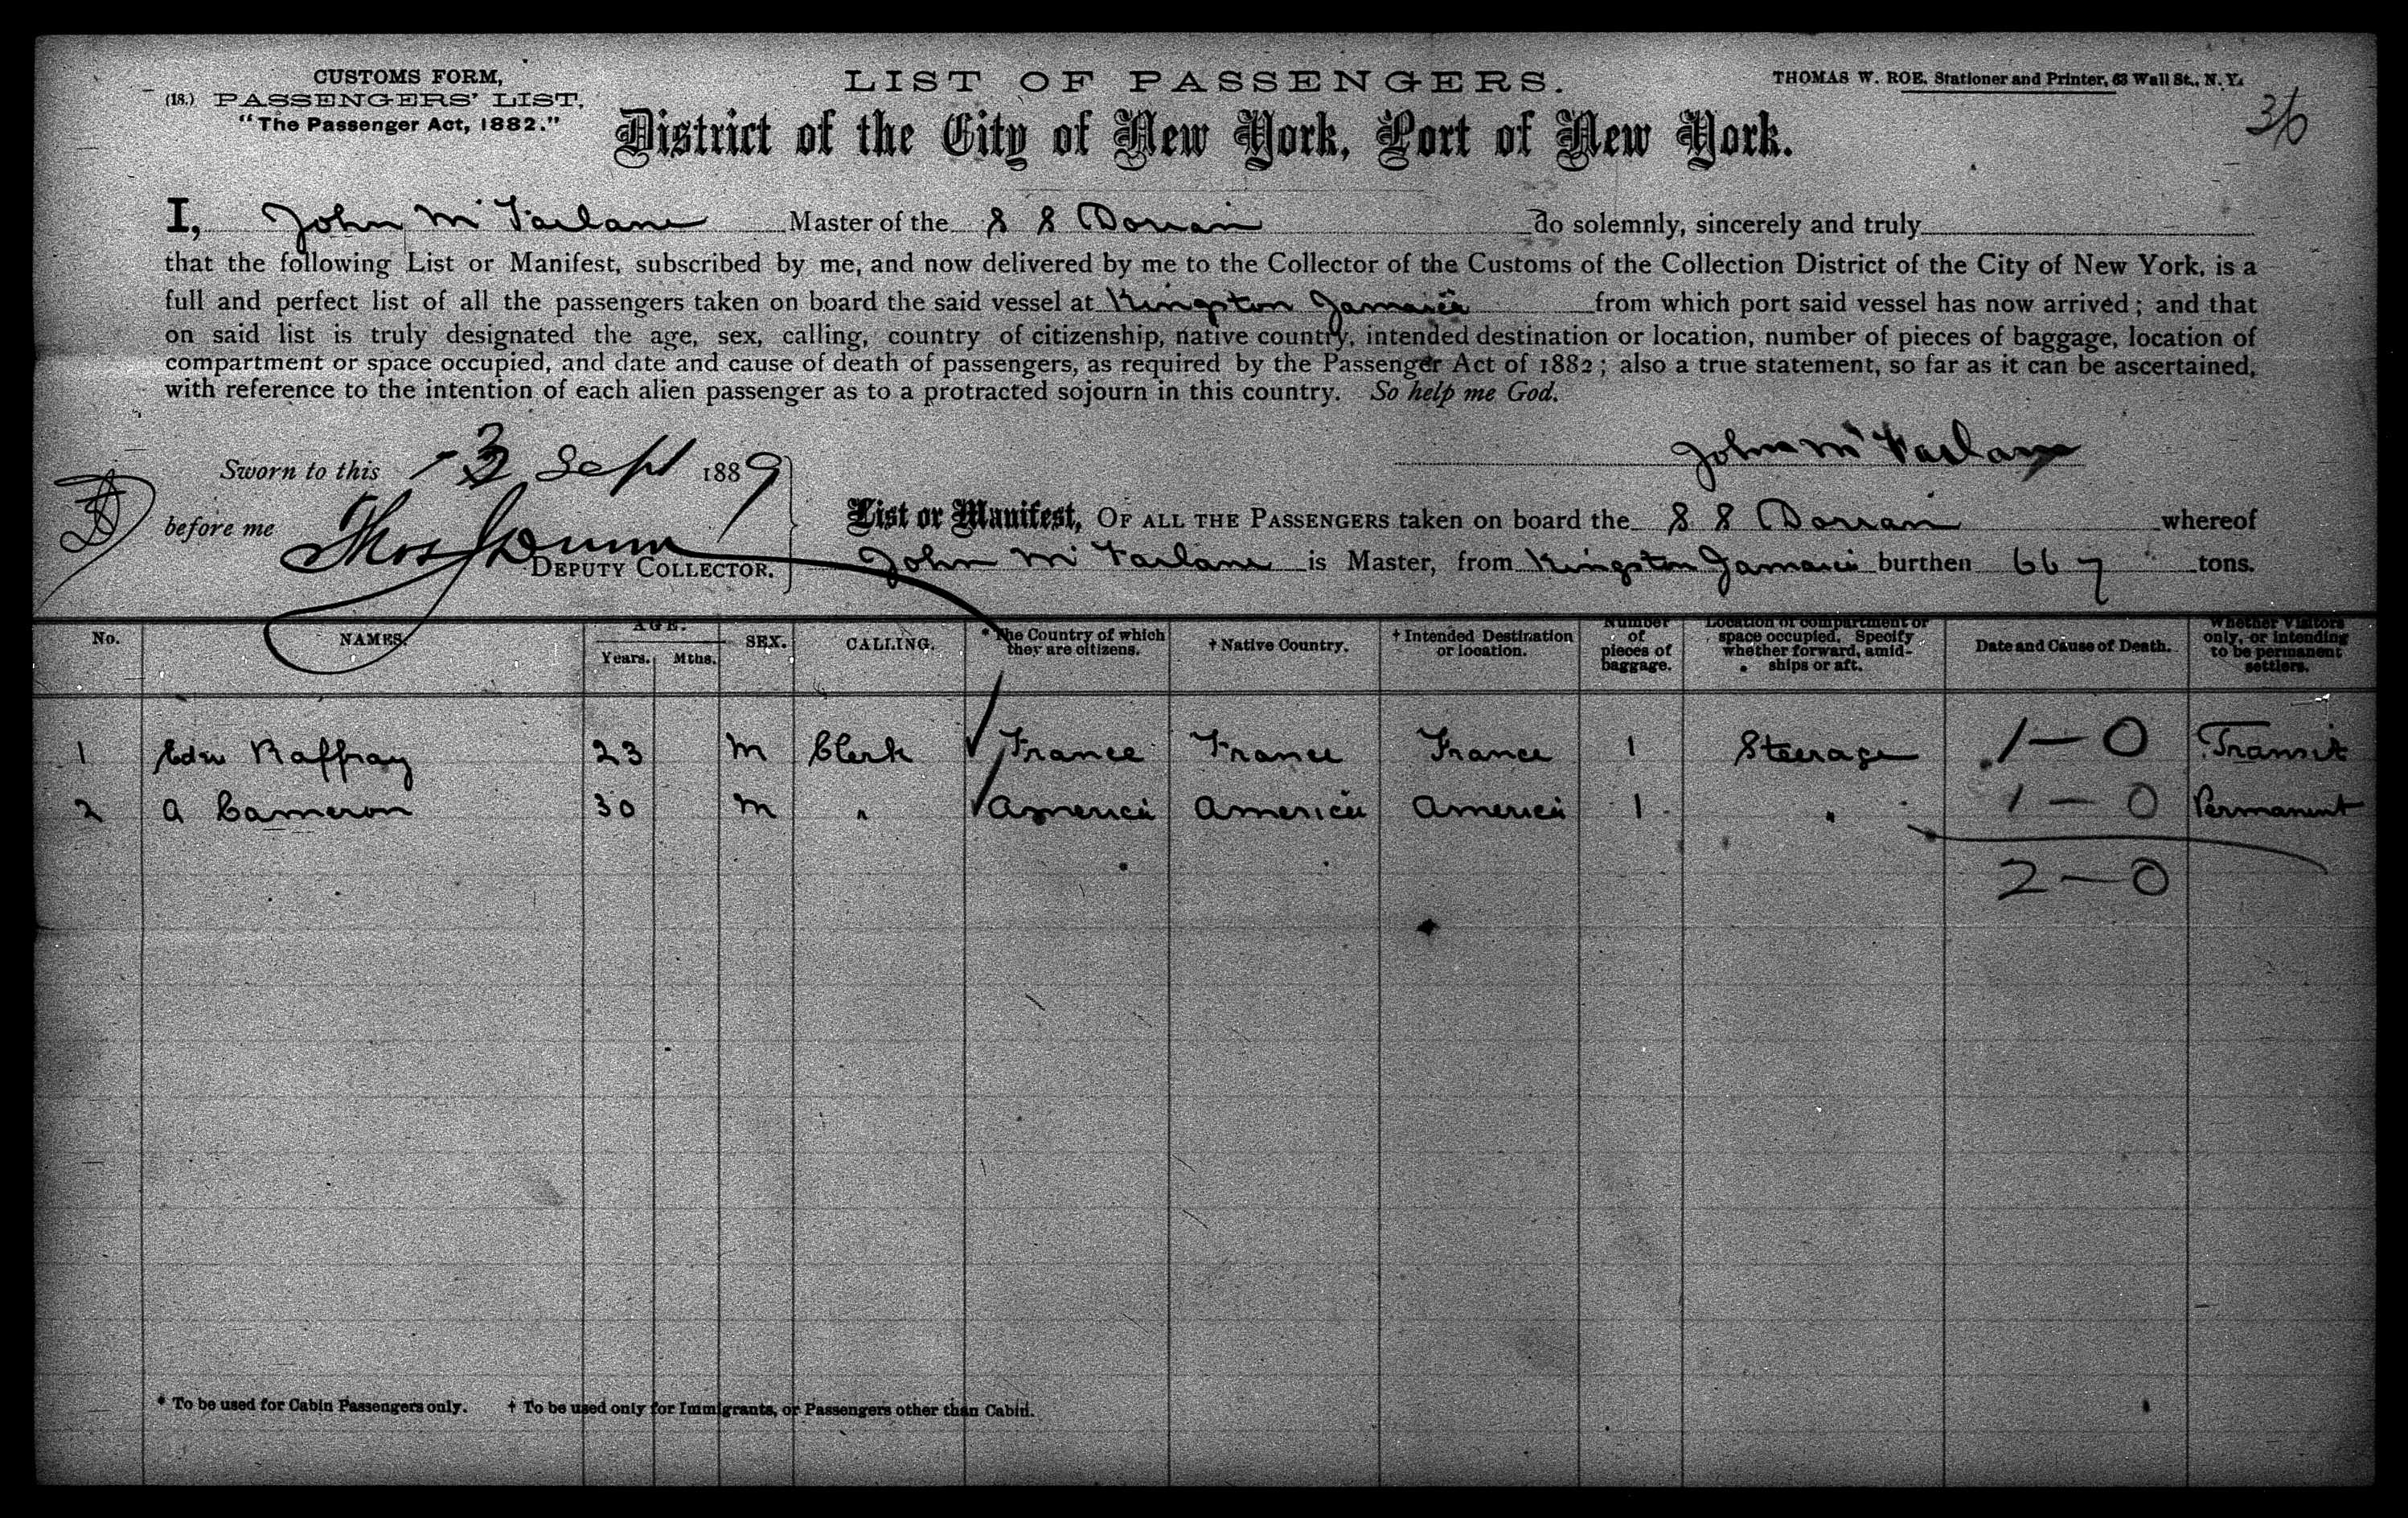 CUSTOMS FORM,
(18.) PASSENGERS' LIST.
"The Passenger Act, 1882."
LIST OF PASSENGERS.
THOMAS W. ROE, Stationer and Printer, 63 Wall St., N. Y.
36
District of the City of New York, Port of New York.
I, John McFarlane Master of the S S Dorian do solemnly, sincerely and truly
that the following List or Manifest, subscribed by me, and now delivered by me to the Collector of the Customs of the Collection District of the City of New York, is a
full and perfect list of all the passengers taken on board the said vessel at Kingston Jamaica from which port said vessel has now arrived; and that
on said list is truly designated the age, sex, calling, country of citizenship, native country, intended destination or location, number of pieces of baggage, location of
compartment or space occupied, and date and cause of death of passengers, as required by the Passenger Act of 1882; also a true statement, so far as it can be ascertained,
with reference to the intention of each alien passenger as to a protracted sojourn in this country. So help me God.
John McFarlane
Sworn to this 13 Sept 1889
before me Thos Dunn
DEPUTY COLLECTOR.
List or Manifest, OF ALL THE PASSENGERS taken on board the S S Dorian whereof
John McFarlane is Master, from Kingston Jamaica burthen 667 tons.
No. NAMES. AGE. Years. Mths. SEX. CALLING. * The Country of which they are citizens. † Native Country. † Intended Destination or location. Number of pieces of baggage. Location of compartment or space occupied. Specify whether forward, amidships or aft. Date and Cause of Death. Whether Visitors only, or intending to be permanent settlers.
1 Edw Raffray 23 M Clerk France France France 1 Steerage 1 — 0 Transit
2 A Cameron 30 M " America America America 1 " 1 — 0 Permanent
2 — 0
* To be used for Cabin Passengers only. † To be used only for Immigrants, or Passengers other than Cabin.